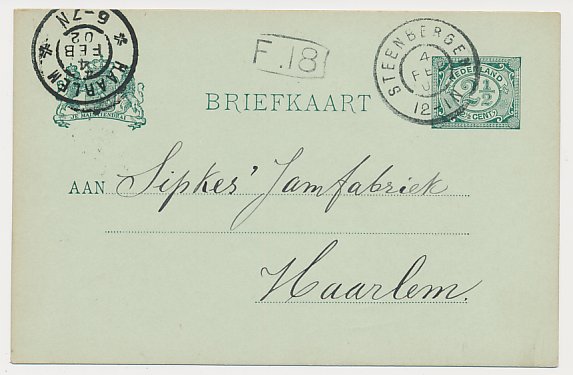 HAARLEM
4
FEB
02
6-7N
F.18
STEENBERGEN
4
FEB
12
NEDERLAND
2½
2½ CENT
JE MAINTIENDRAI
BRIEFKAART
AAN Sipkes' Jamfabriek
Haarlem.